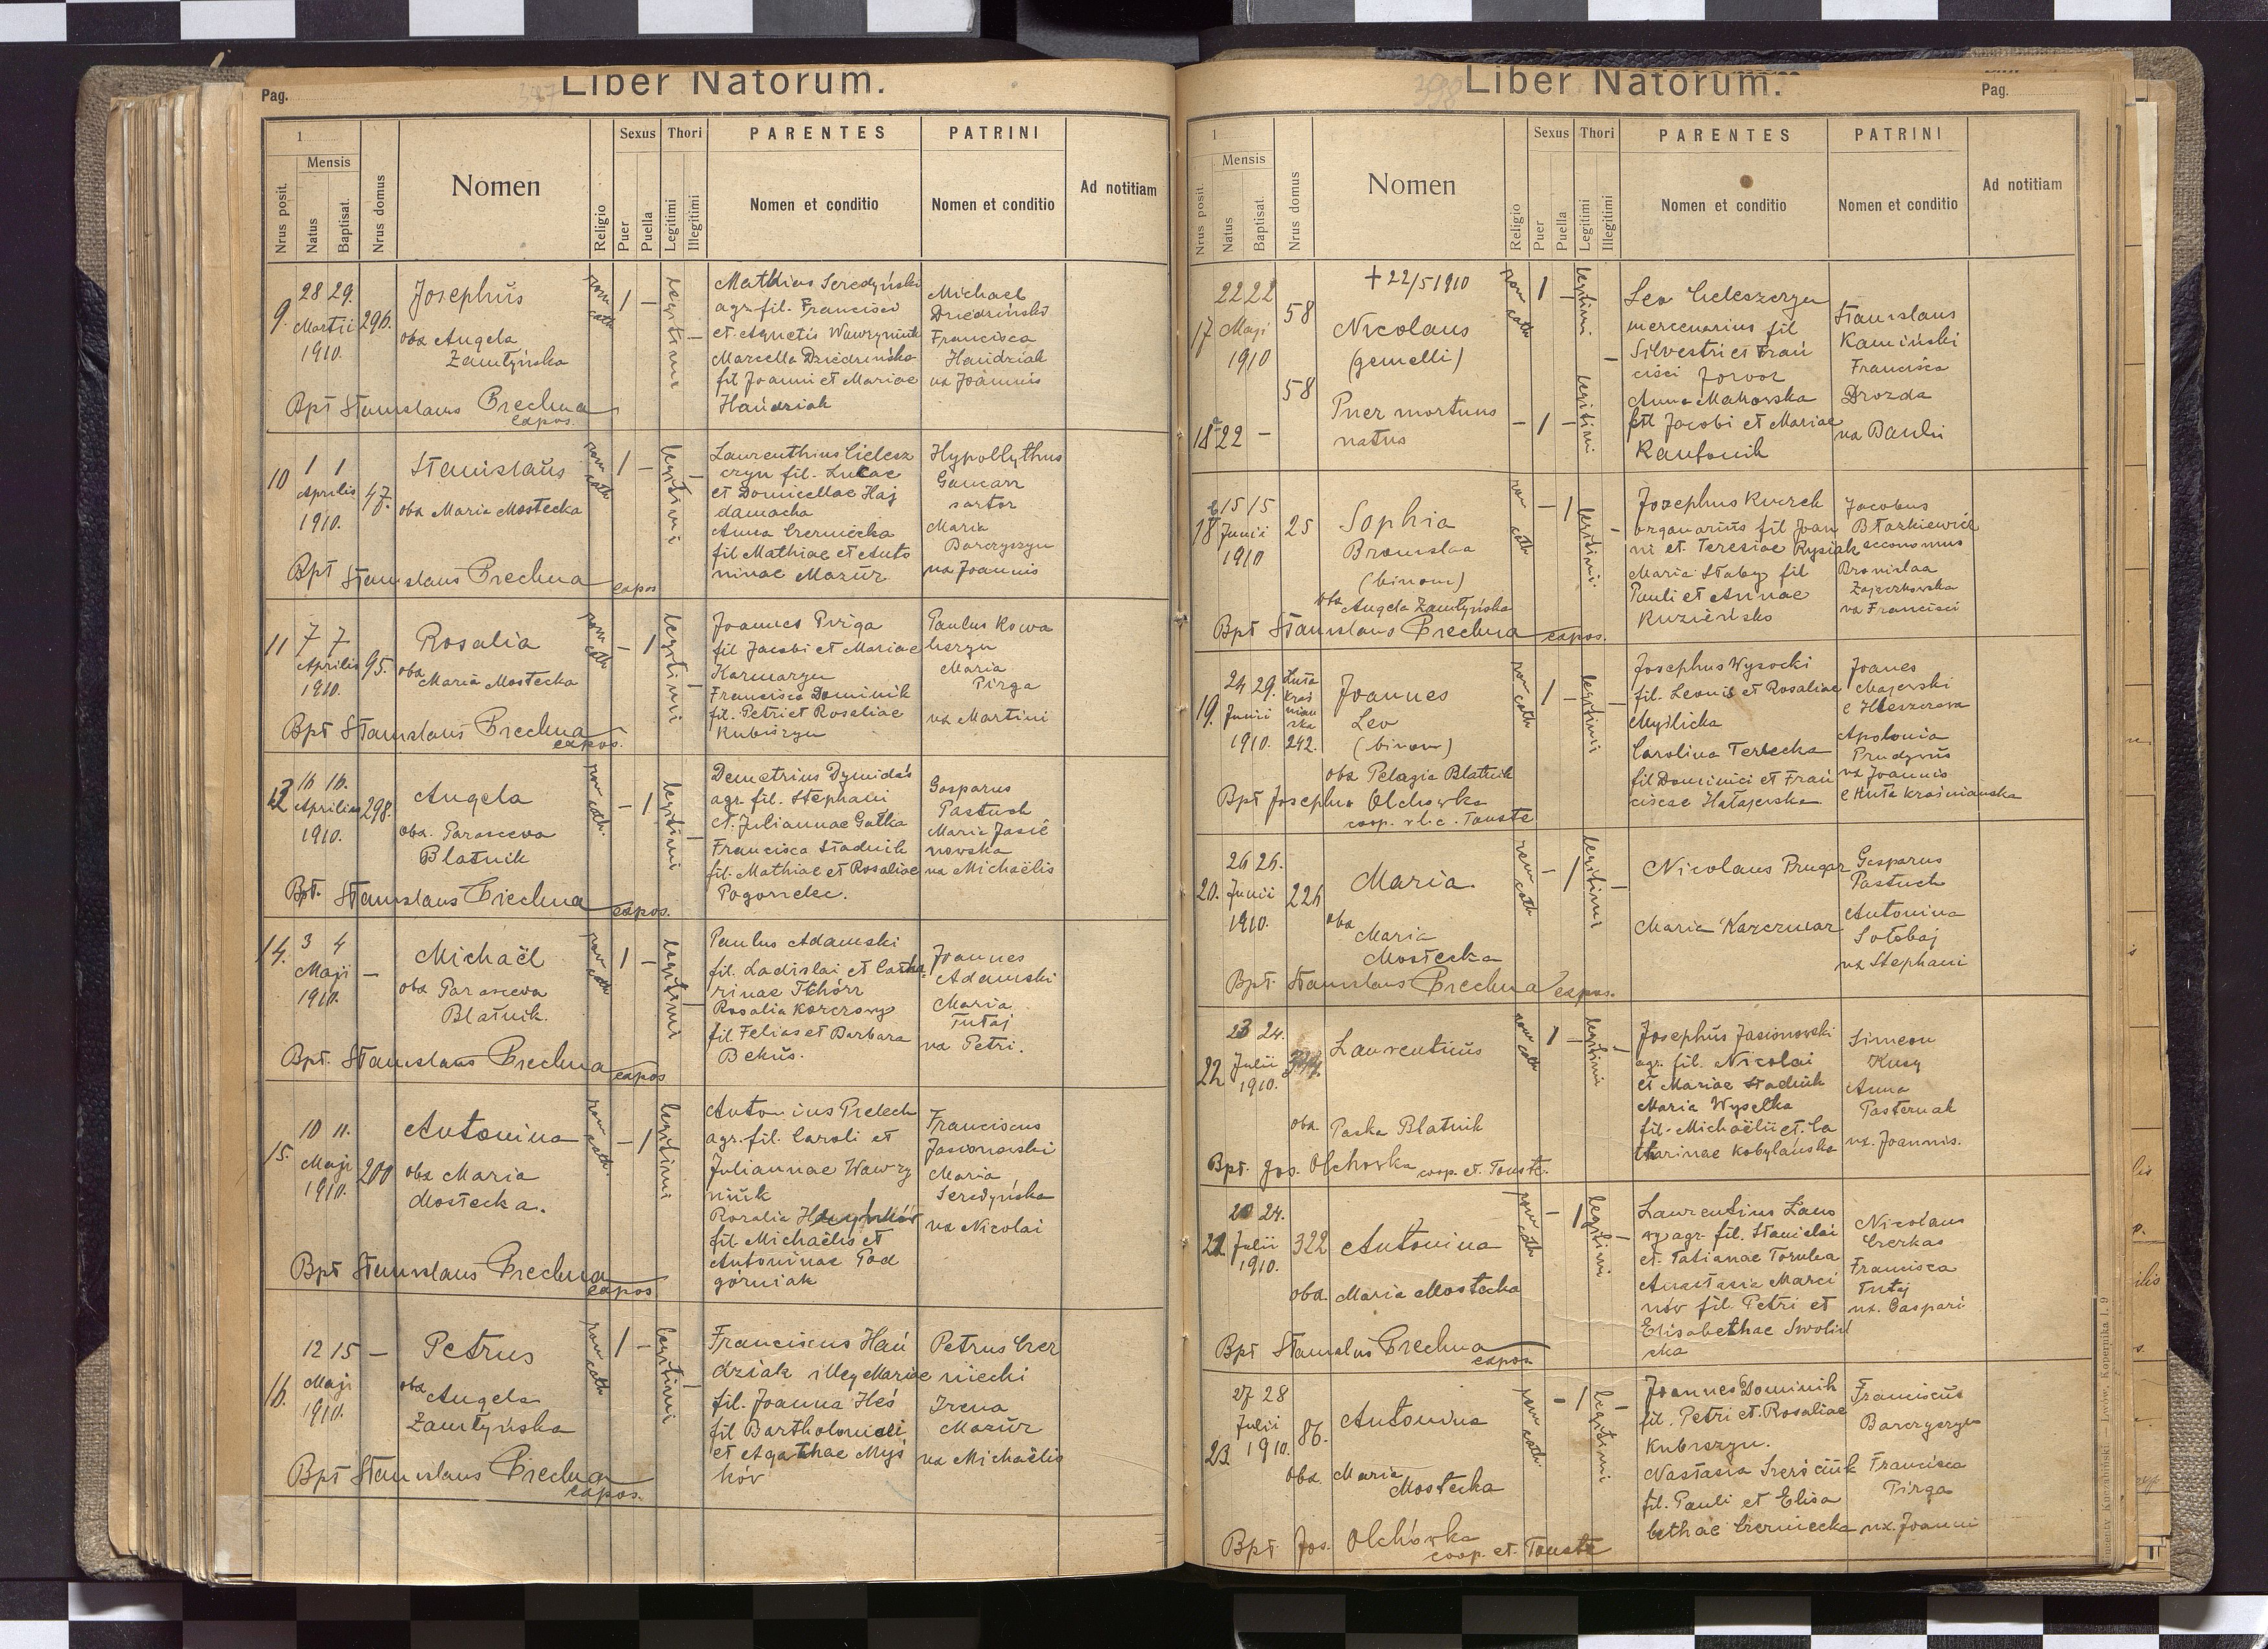 Liber Natorum.
Pag.
1
Nrus posit.
Mensis
Natus
Baptisat.
Nrus domus
Nomen
Religio
Sexus
Puer
Puella
Thori
Legitimi
Illegitimi
PARENTES
Nomen et conditio
PATRINI
Nomen et conditio
Ad notitiam
9.
28 29.
Martii
1910.
296.
Josephus
oba Angela
Zamłyńska
rom cath
1 -
legitimi
Mathias Seredyński
agr. fil. Francisci
et Agnetis Wawryniuk
Marcella Dziedzińska
fil Joanni et Mariae
Hańdziak
Michael
Dziedziński
Francisca
Handziak
ux Joannis
Bpt Stanislaus Brechna
expos.
10
1 1
Aprilis
1910.
47.
Stanislaus
oba Maria Mostecka
rom cath
1 -
legitimi
Laurenthius Cielesz
czyn fil. Lucae
et Domicellae Haj
damacha
Anna Czerniecka
fil Mathiae et Anto
ninae Mazur
Hypollythus
sartor
Maria
Barczyszyn
ux Joannis
Bpt Stanislaus Brechna
expos
11
7 7
Aprilis
1910.
95.
Rosalia
oba
Maria Mostecka
rom cath
- 1
legitimi
Joannes Pirga
fil Jacobi et Mariae
Karmazyn
Francisca Dominik
fil. Petri et Rosaliae
Kubiszyn
Paulus Kowa
Maria
Pirga
ux Martini
Bpt Stanislaus Brechna
expos.
12
16 16.
Aprilis
1910.
298.
Angela
oba. Parasceva
Blatnik
rom cath.
- 1
legitimi
Demetrius Dymidas
agr. fil. Stephani
et. Juliannae Gatka
Francisca Stadnik
fil. Mathiae et Rosaliae
Pogorzelec.
Gasparus
Pastuch
Maria Jasie
nowska
ux Michaëlis
Bpt. Stanislaus Brechna
expos.
14.
3 4
Maji
1910.
-
Michaël
oba Parasceva
Blatnik.
rom cath
1 -
legitimi
Paulus Adamski
fil. Ladislai et Catha
rinae Tchórz
Rosalia
fil Felias et Barbara
Bekus.
Joannes
Adamski
Maria
Tutaj
ux Petri.
Bpt. Stanislaus Brechna
expos
15.
10 11.
Maji
1910.
200
Antonina
oba Maria
Mostecka.
rom cath.
- 1
legitimi
Antonius Prelech
agr. fil. Caroli et
Juliannae Wawry
niuk
Rosalia
fil. Michaëlis et
Antoninae Pod
górniak
Franciscus
Jasionowski
Maria
Seredyńska
ux Nicolai
Bpt Stanislaus Brechna
expos
16.
12 15
Maji
1910.
-
Petrus
oba
Angela
Zamłyńska
rom cath
1 -
legitimi
Franciscus Hań
dziak illeg Mariae
fil. Joanna Heś
fil Bartholomiei
et Agathae Myś
ków
Petrus Czer
niecki
Irena
Mazur
ux Michaëlis
Bpt Stanislaus Brechna
expos.
Liber Natorum.
398
Pag.
1
Nrus posit.
Mensis
Natus
Baptisat.
Nrus domus
Nomen
Religio
Sexus
Puer
Puella
Thori
Legitimi
Illegitimi
PARENTES
Nomen et conditio
PATRINI
Nomen et conditio
Ad notitiam
17
22 22
Maji
1910
58
+ 22/5 1910
Nicolaus
(gemelli)
rom cath
1 -
legitimi
Leo Cieleszczyn
mercenarius fil
Silvestri et Fran
cisci
Anna Makowska
fil Jacobi et Mariae
Stanislaus
Kamiński
Francisca
Drozda
ux Pauli
18 a
22 -
58
Puer mortuus
natus
- 1 -
legitimi
18 b
15 15
Junii
1910
25
Sophia
Bronislaa
(binom)
oba Angela Zamłyńska
rom cath
- 1
legitimi
Josephus
organarius fil Joan
ni et Teresiae Rysiak
Maria Słaby fil
Pauli et Annae
Kuzieńska
Jacobus
Błazkiewicz
economus
Bronislaa
Zajączkowska
ux Francisci
Bpt Stanislaus Brechna expos.
19.
24 29.
Junii
1910.
Huta
kraś
nian
ska
242.
Joannes
Leo
(binom)
oba Pelagia Blatnik
rom cath
1 -
legitimi
Josephus Wysocki
fil. Leonis et Rosaliae
Myślicka
Carolina Terlecka
fil Dominici et Fran
ciscae Hałajewska
Joanes
Majewski
e Kleszczowa
Apolonia
Prudyus
ux Joannis
e Huta kraśnianska
Bpt Josephus Olchowka
coop. r.l.c. Touste
20.
26 26.
Junii
1910.
226
Maria
oba
Maria
Mostecka
rom cath
- 1
legitimi
Nicolaus Prugar
Maria Karczmar
Gasparus
Pastuch
Antonina
Sołobaj
ux Stephani
Bpt. Stanislaus Brechna expos.
22
23 24.
Julii
1910.
Laurentius
oba. Paska Blatnik
rom cath
1 -
legitimi
Josephus Jasionowski
agr. fil. Nicolai
et Mariae Stadnik
Maria Wyselka
fil. Michaëlii et. Ca
tharinae Kobylańska
Simeon
Kusy
Anna
Pasternak
ux. Joannis.
Bpt. Jos. Olchowka coop. et. Touste.
21.
20 24.
Julii
1910.
322
Antonina
oba. Maria Mostecka
rom cath
- 1
legitimi
Laurentius Zaus
agr. fil. Stanislai
et Tatianae Tomba
Anastasia Marci
nów fil. Petri et
Elisabethae Swoliń
ska
Nicolaus
Czerkas
Francisca
Tutaj
ux. Caspari
Bpt Stanislus Brechna
expos.
23.
27 28
Julii
1910.
86.
Antonina
oba Maria
Mostecka
rom cath.
- 1
legitimi
Joannes Dominik
fil. Petri et. Rosaliae
Kubiszyn.
Nastasia
fil. Pauli et Elisa
bethae Czerniecka
Franciscus
Barczyszyn
Francisca
Pirga
ux. Joanni
Bpt. Jos. Olchówka
coop. et. Touste
Lwów, Kopernika l. 9